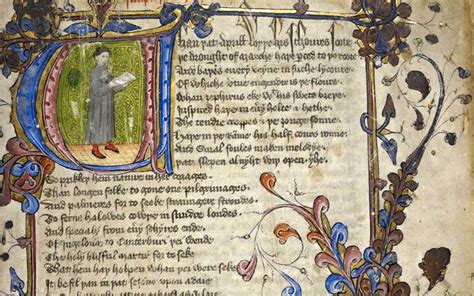 han þat april wiþ his schoures soote
þe drought of marche haþ perced to þe roote
And baþed euery veyne in suche lycoure
Of whiche vertue engendred is þe floure
Whan zephirus eke wiþ his swete breþe
Inspired haþe in euery holte & heþe
The tendre croppes & þe ȝonge sonne
Haþe in þe rame his half cours ronne
And smal foules maken melodye
þat slepen al nyht wiþ open yhe
So prikkeþ hem nature in her corages
Than longen folke to gone on pilgrimages
And palmers for to seeke straunge strondes
To ferne halowes cowþe in sundre londes
And specialy from euery schires ende
Of Ingelond to Canterburi þei wende
The holy blisful martir for to seke
That hem haþ holpen whan þat þei were seke
It befel þan in seson upon a daie